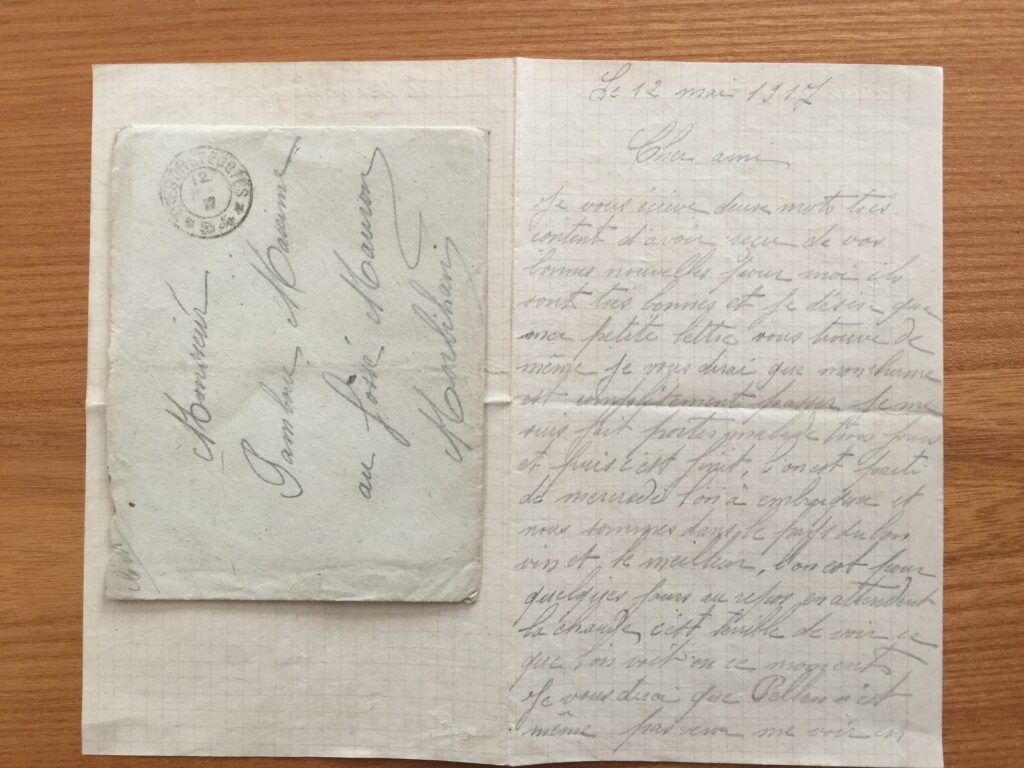 TRESOR ET POSTES
12
Monsieur
Maxime
au fossé Mauron
Morbihan
Le 12 mai 1917
Cher ami
Je vous écrive deux mots très
content d'avoir reçu de vos
bonnes nouvelles pour moi ils
sont très bonnes et je désir que
ma petite lettre vous trouve de
même Je vous dirai que mon rhume
est complètement passer Je me
suis fait porter malade trois jours
et puis c'est finit, l'on est parti
de mercredi l'on à embarquer et
nous sommes dans le pays du bon
vin et le meilleur, l'on est pour
quelques jours au repos en attendent
la chaude c'est terrible de voir ce
que l'on voit en ce moment
Je vous dirai que n'est
même pas venu me voir en